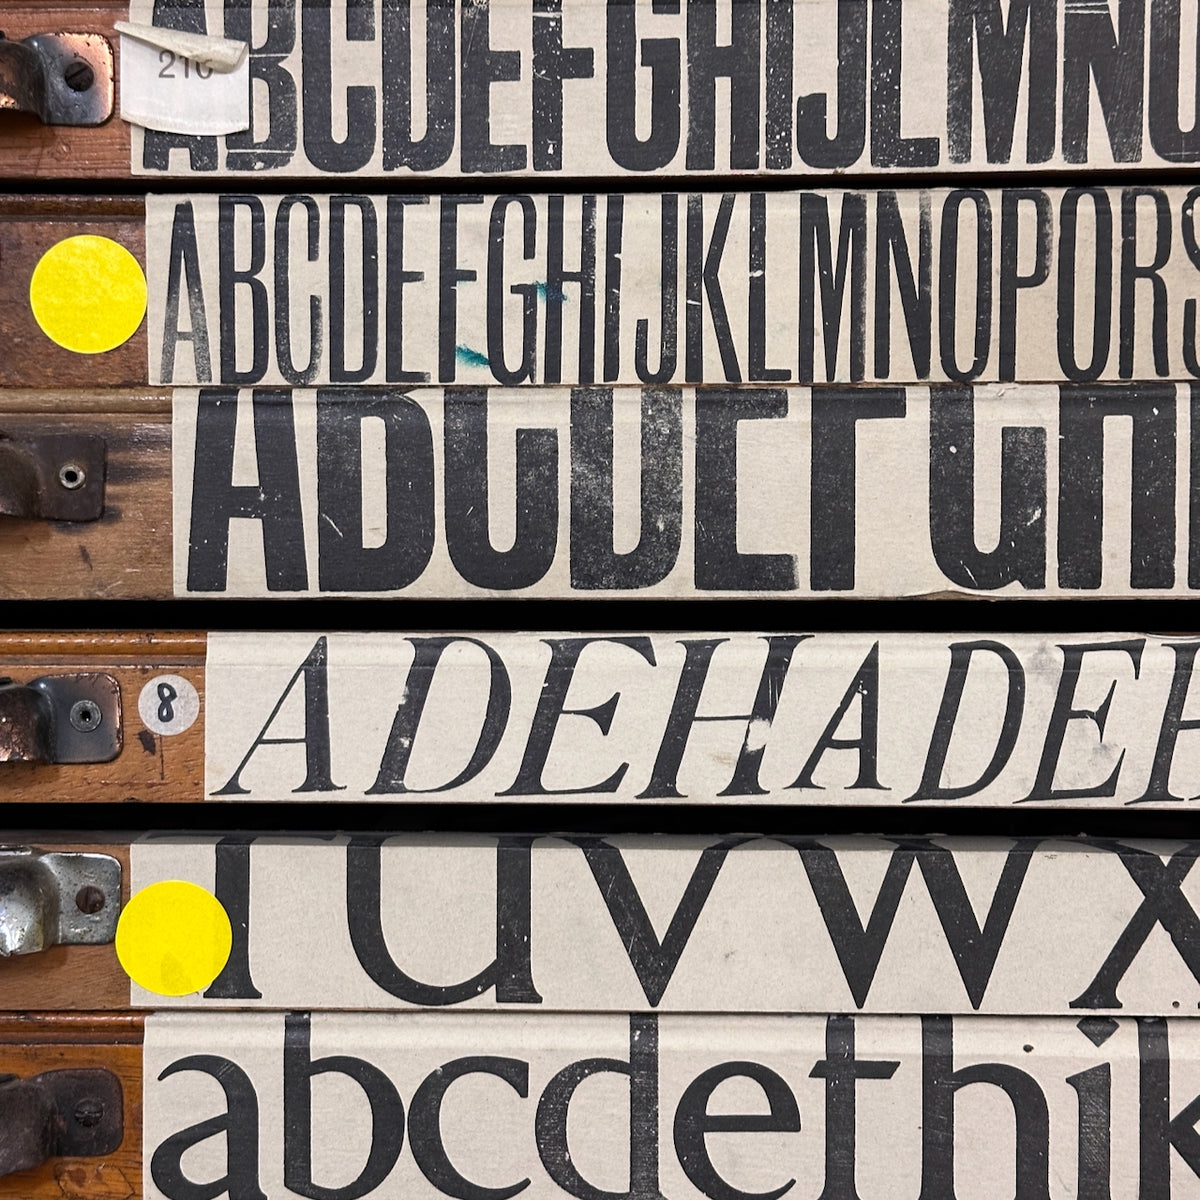 ABCDEFGHIJLMN
ABCDEFGHIJKLMNOPORS
ABCDEFGH
8
ADEHADEH
TUVWX
abcdefhik